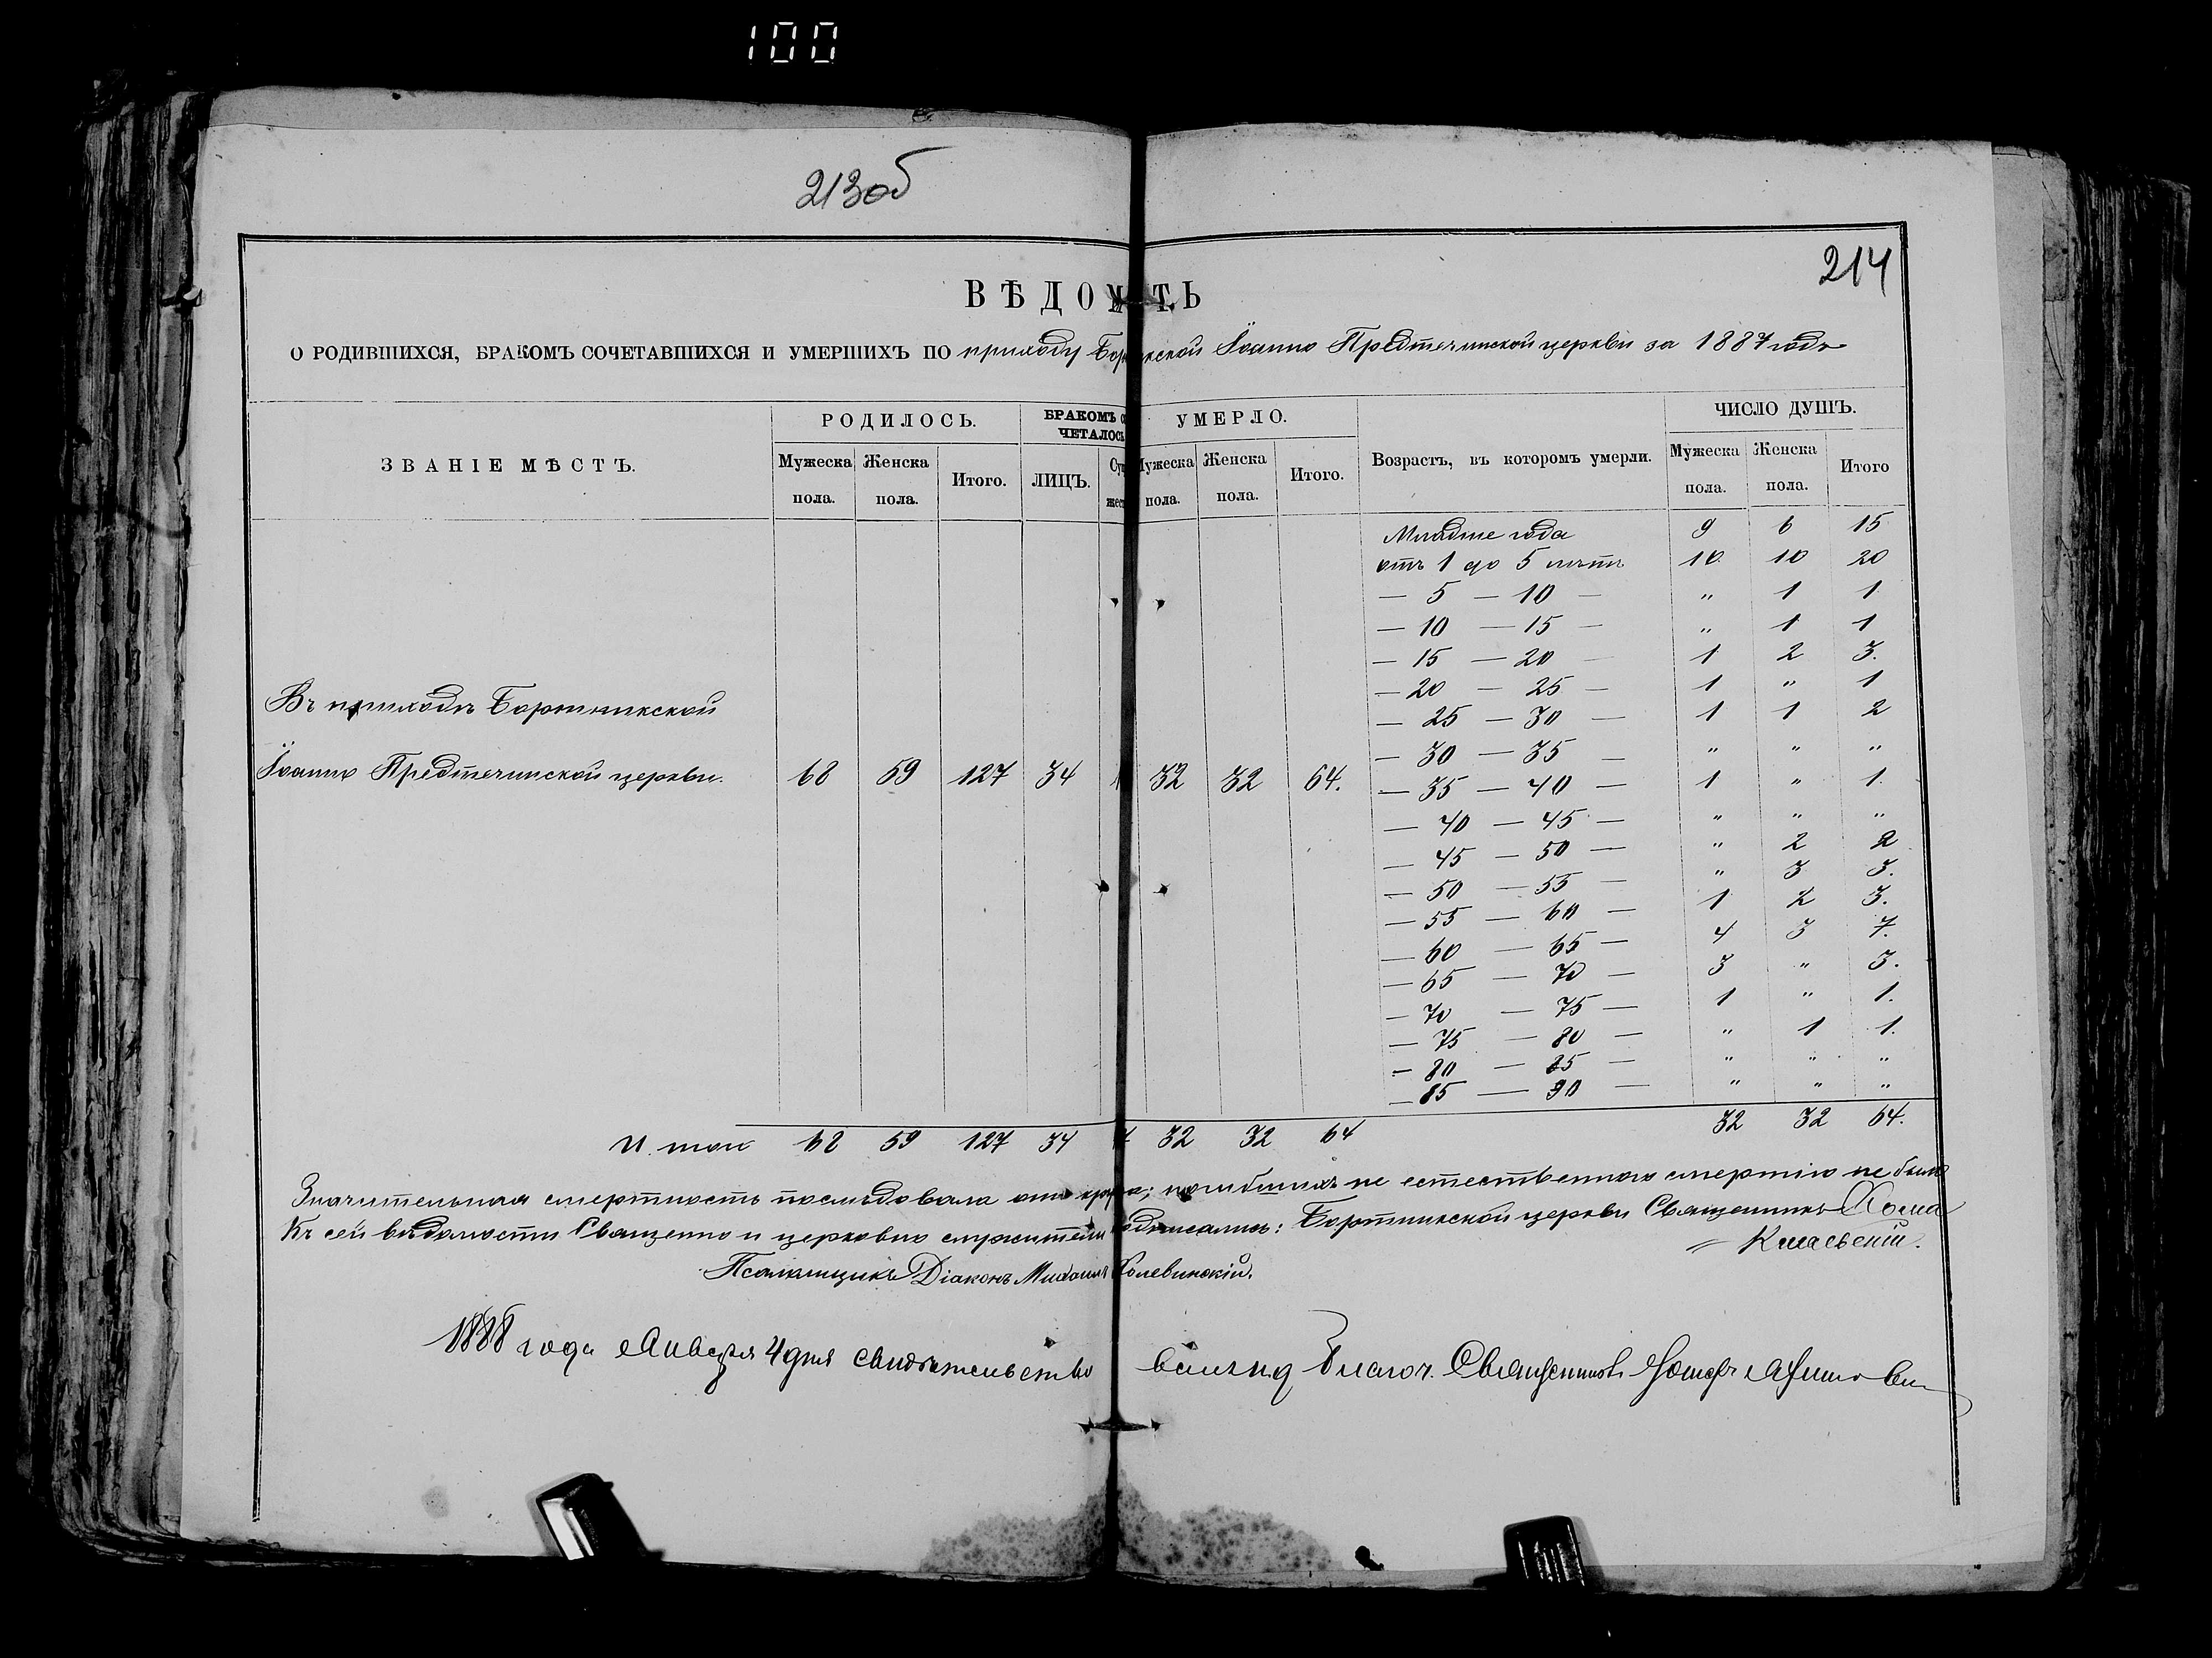 100
213об
214
ВѢДОМ ТЬ
О РОДИВШИХСЯ, БРАКОМЪ СОЧЕТАВШИХСЯ И УМЕРШИХЪ ПО приходу Іоанно Предтечинской церкви за 1887 годъ
ЗВАНІЕ МѢСТЪ. РОДИЛОСЬ. БРАКОМЪ СО ЧЕТАЛОСЬ УМЕРЛО. Возрастъ, въ которомъ умерли. ЧИСЛО ДУШЪ.
Мужеска пола. Женска пола. Итого. ЛИЦЪ. Мужеска пола. Женска пола. Итого. Мужеска пола. Женска пола. Итого
Младше года 9 6 15
отъ 1 до 5 лѣтъ 10 10 20
— 5 — 10 — " 1 1
— 10 — 15 — " 1 1
— 15 — 20 — 1 2 3.
— 20 — 25 — 1 " 1
— 25 — 30 — 1 1 2
— 30 — 35 — " " "
— 35 — 40 — 1 " 1.
— 40 — 45 — " " "
— 45 — 50 — " 2 2
— 50 — 55 — " 3 3.
— 55 — 60 — 1 2 3.
— 60 — 65 — 4 3 7.
— 65 — 70 — 3 " 3.
— 70 — 75 — 1 " 1.
— 75 — 80 — " 1 1.
— 80 — 85 — " " "
— 85 — 90 — " " "
Въ приходѣ Бортникской
Іоанно Предтечинской церкви. 68 59 127 34 32 32 64.
Итого 68 59 127 34 32 32 64 32 32 64.
Значительная смертность послѣдовала отъ погибшихъ не естественною смертію не было
Къ сей вѣдомости Священно и церковно служители подписались: Бортникской церкви Священникъ Хома
Псаломщикъ Діаконъ Михаилъ
1888 года Января 4 дня свидѣтельство валъ Благоч. Священникъ